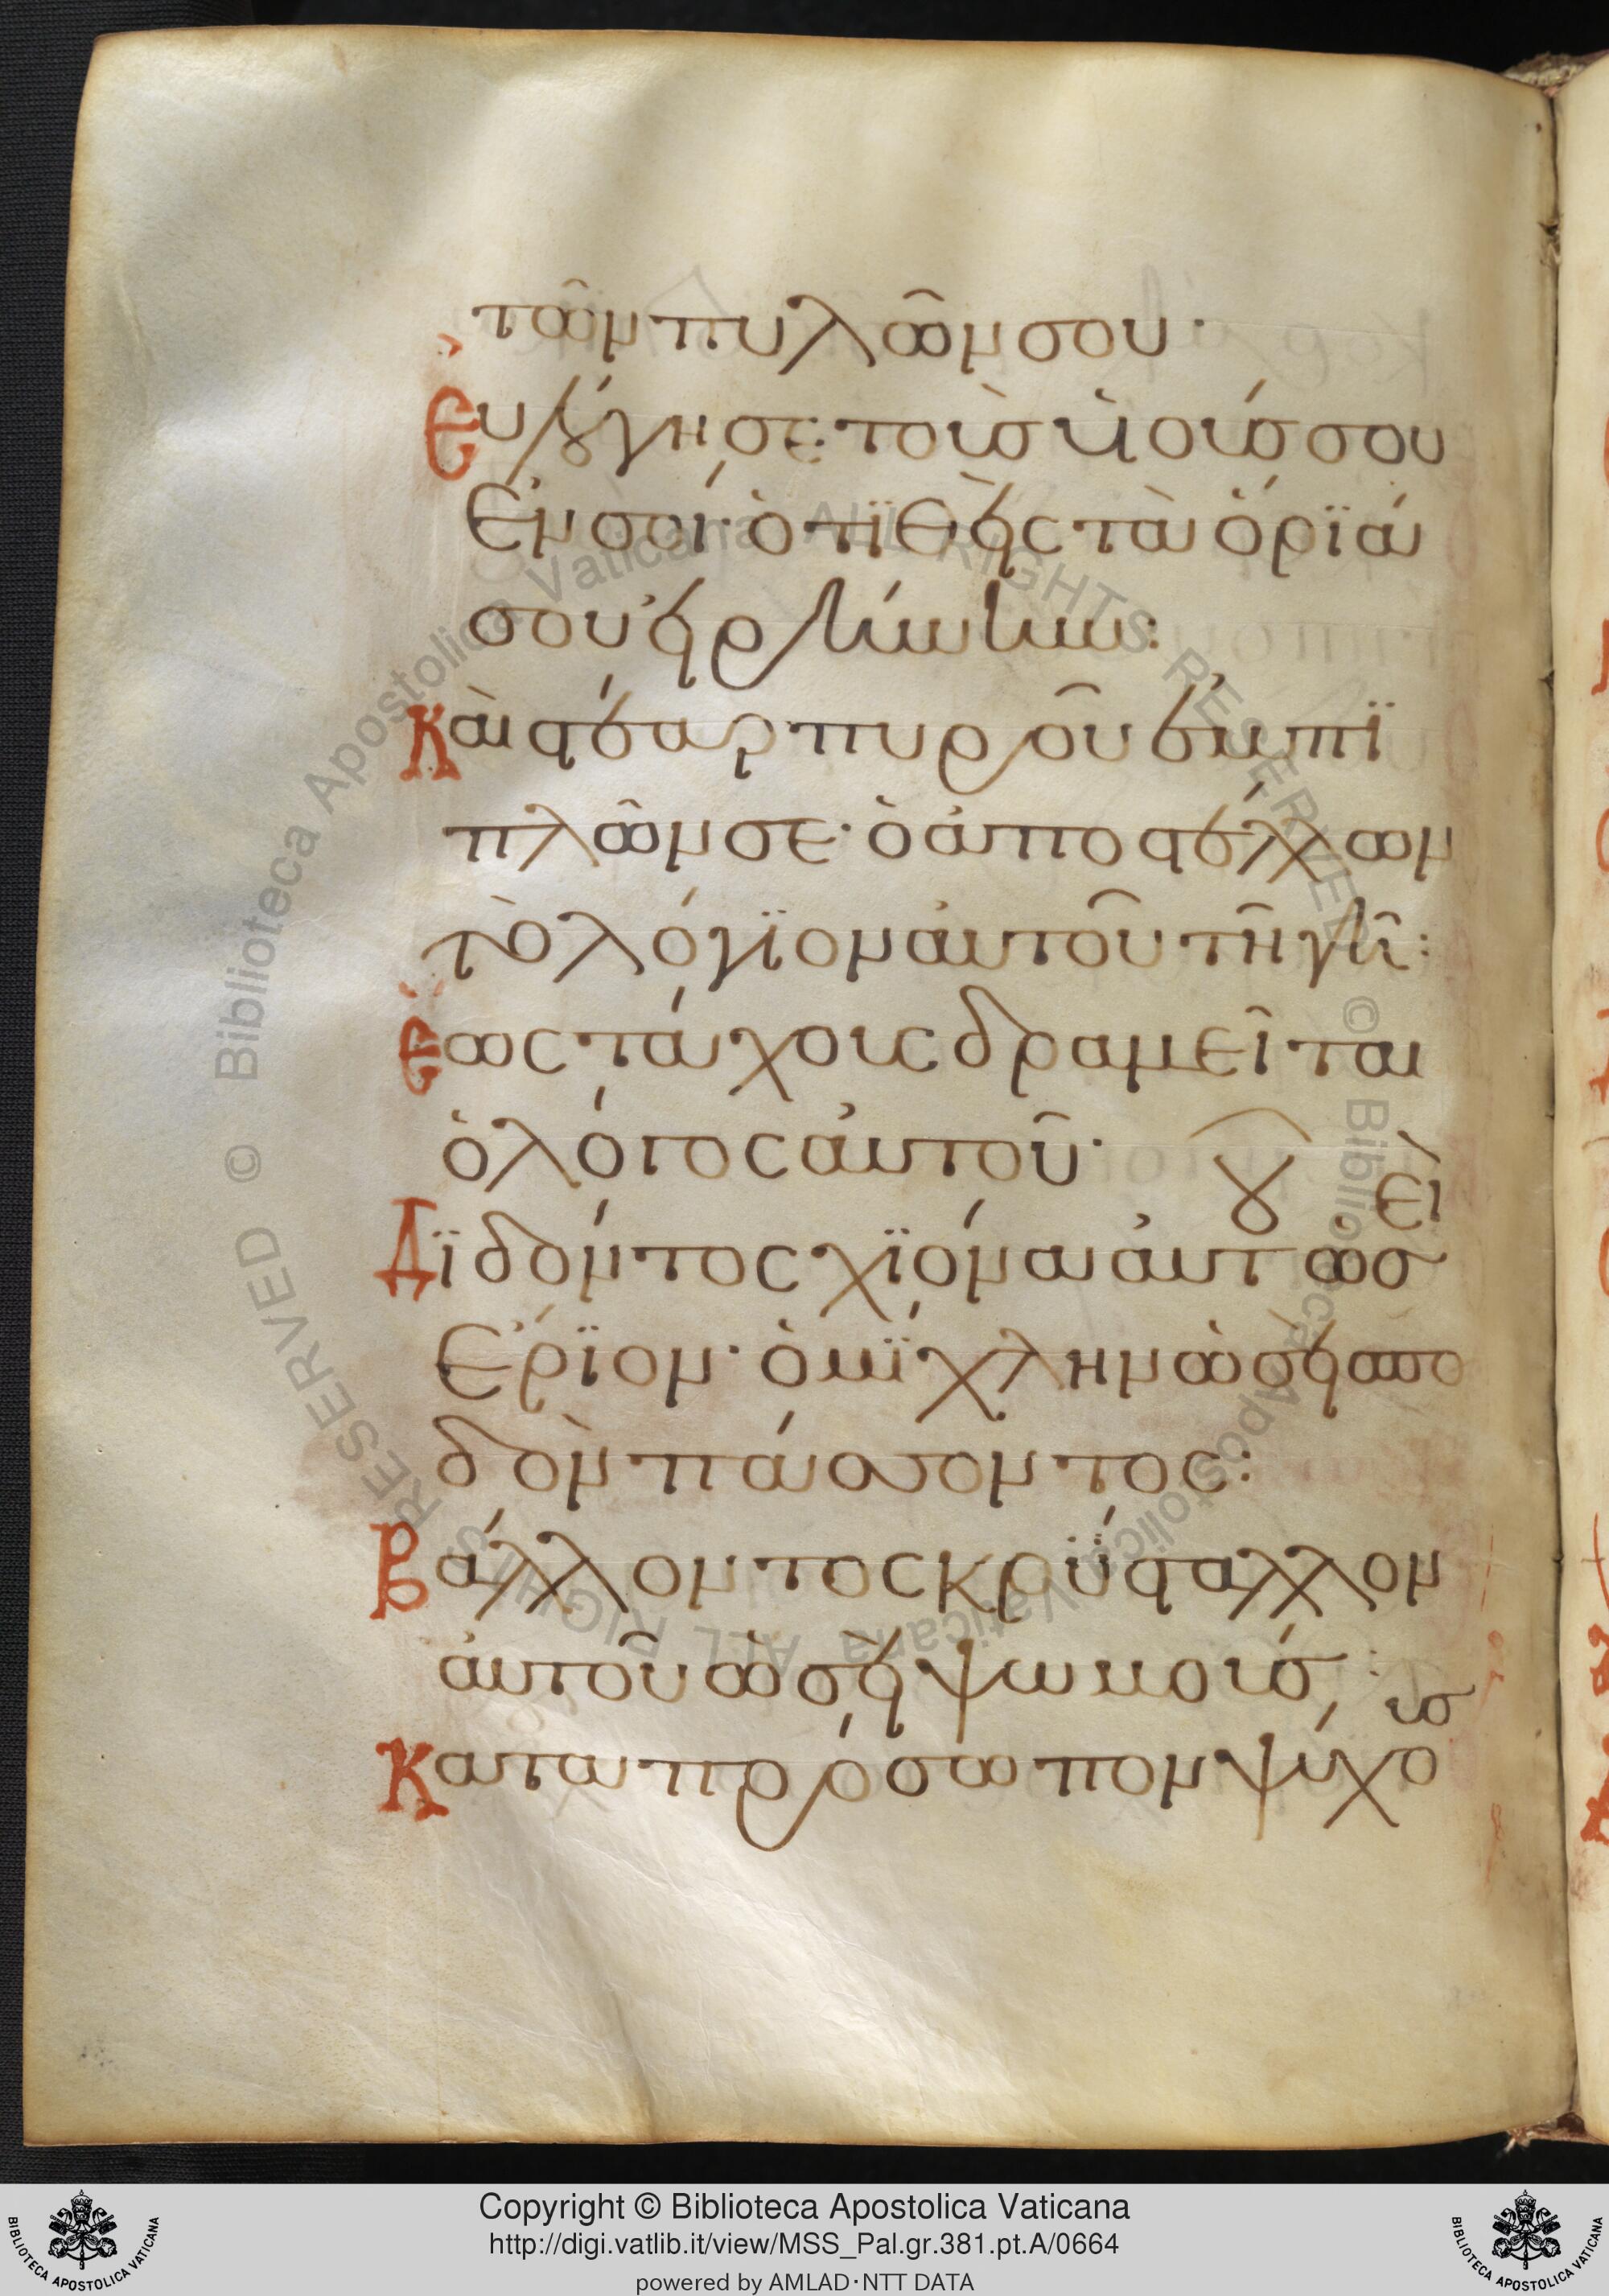 τῶν πυλῶν σου·
Εὐλόγησε τοὺς ὑιούς σου
ἐν σοί· ὁ τιθεὶς τὰ ὅριά
σου εἰρήνην:
Καὶ στέαρ πυροῦ ἐμπι
πλῶν σε· ὁ ἀποστέλλων
τὸ λόγιον ἀυτοῦ τῆ γῆ:
Ἕως τάχους δραμεῖται
ὁ λόγος ἀυτοῦ·
Διδόντος χιόνα ἀυτοῦ ὡσεὶ
ἔριον· ὁμίχλην ὡσεὶ σπο
δὸν πάσσοντος:
Βάλλοντος κρύσταλλον
ἀυτοῦ ὡσεὶ ψωμούς:
Κατα πρόσωπον ψύχους
Copyright © Biblioteca Apostolica Vaticana
http://digi.vatlib.it/view/MSS_Pal.gr.381.pt.A/0664
powered by AMLAD·NTT DATA
© Biblioteca Apostolica Vaticana ALL RIGHTS RESERVED
© Biblioteca Apostolica Vaticana ALL RIGHTS RESERVED
BIBLIOTECA APOSTOLICA VATICANA
BIBLIOTECA APOSTOLICA VATICANA